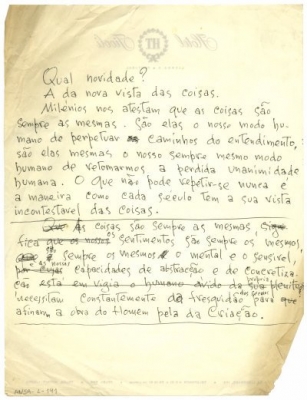 Hotel Tivoli
Qual novidade?
A da nova vista das coisas.
Milénios nos atestam que as coisas são
sempre as mesmas. São elas o nosso modo hu-
mano de perpetuar caminhos do entendimento:
são elas mesmas o nosso sempre mesmo modo
humano de retomarmos a perdida unanimidade
humana. O que não pode repetir-se nunca é
a maneira como cada século tem a sua vista
incontestável das coisas.
As coisas são sempre as mesmas, sig-
fica que os nossos os sentimentos são sempre os mesmos,
é sempre os mesmos o mental e o sensível,
e as nossas capacidades de abstracção e de concretiza-
ção está em vigia o humano ávido da sua própria plenitude
necessitam constantemente de frescuidão para que
afinem a obra do Homem pela da Criação.